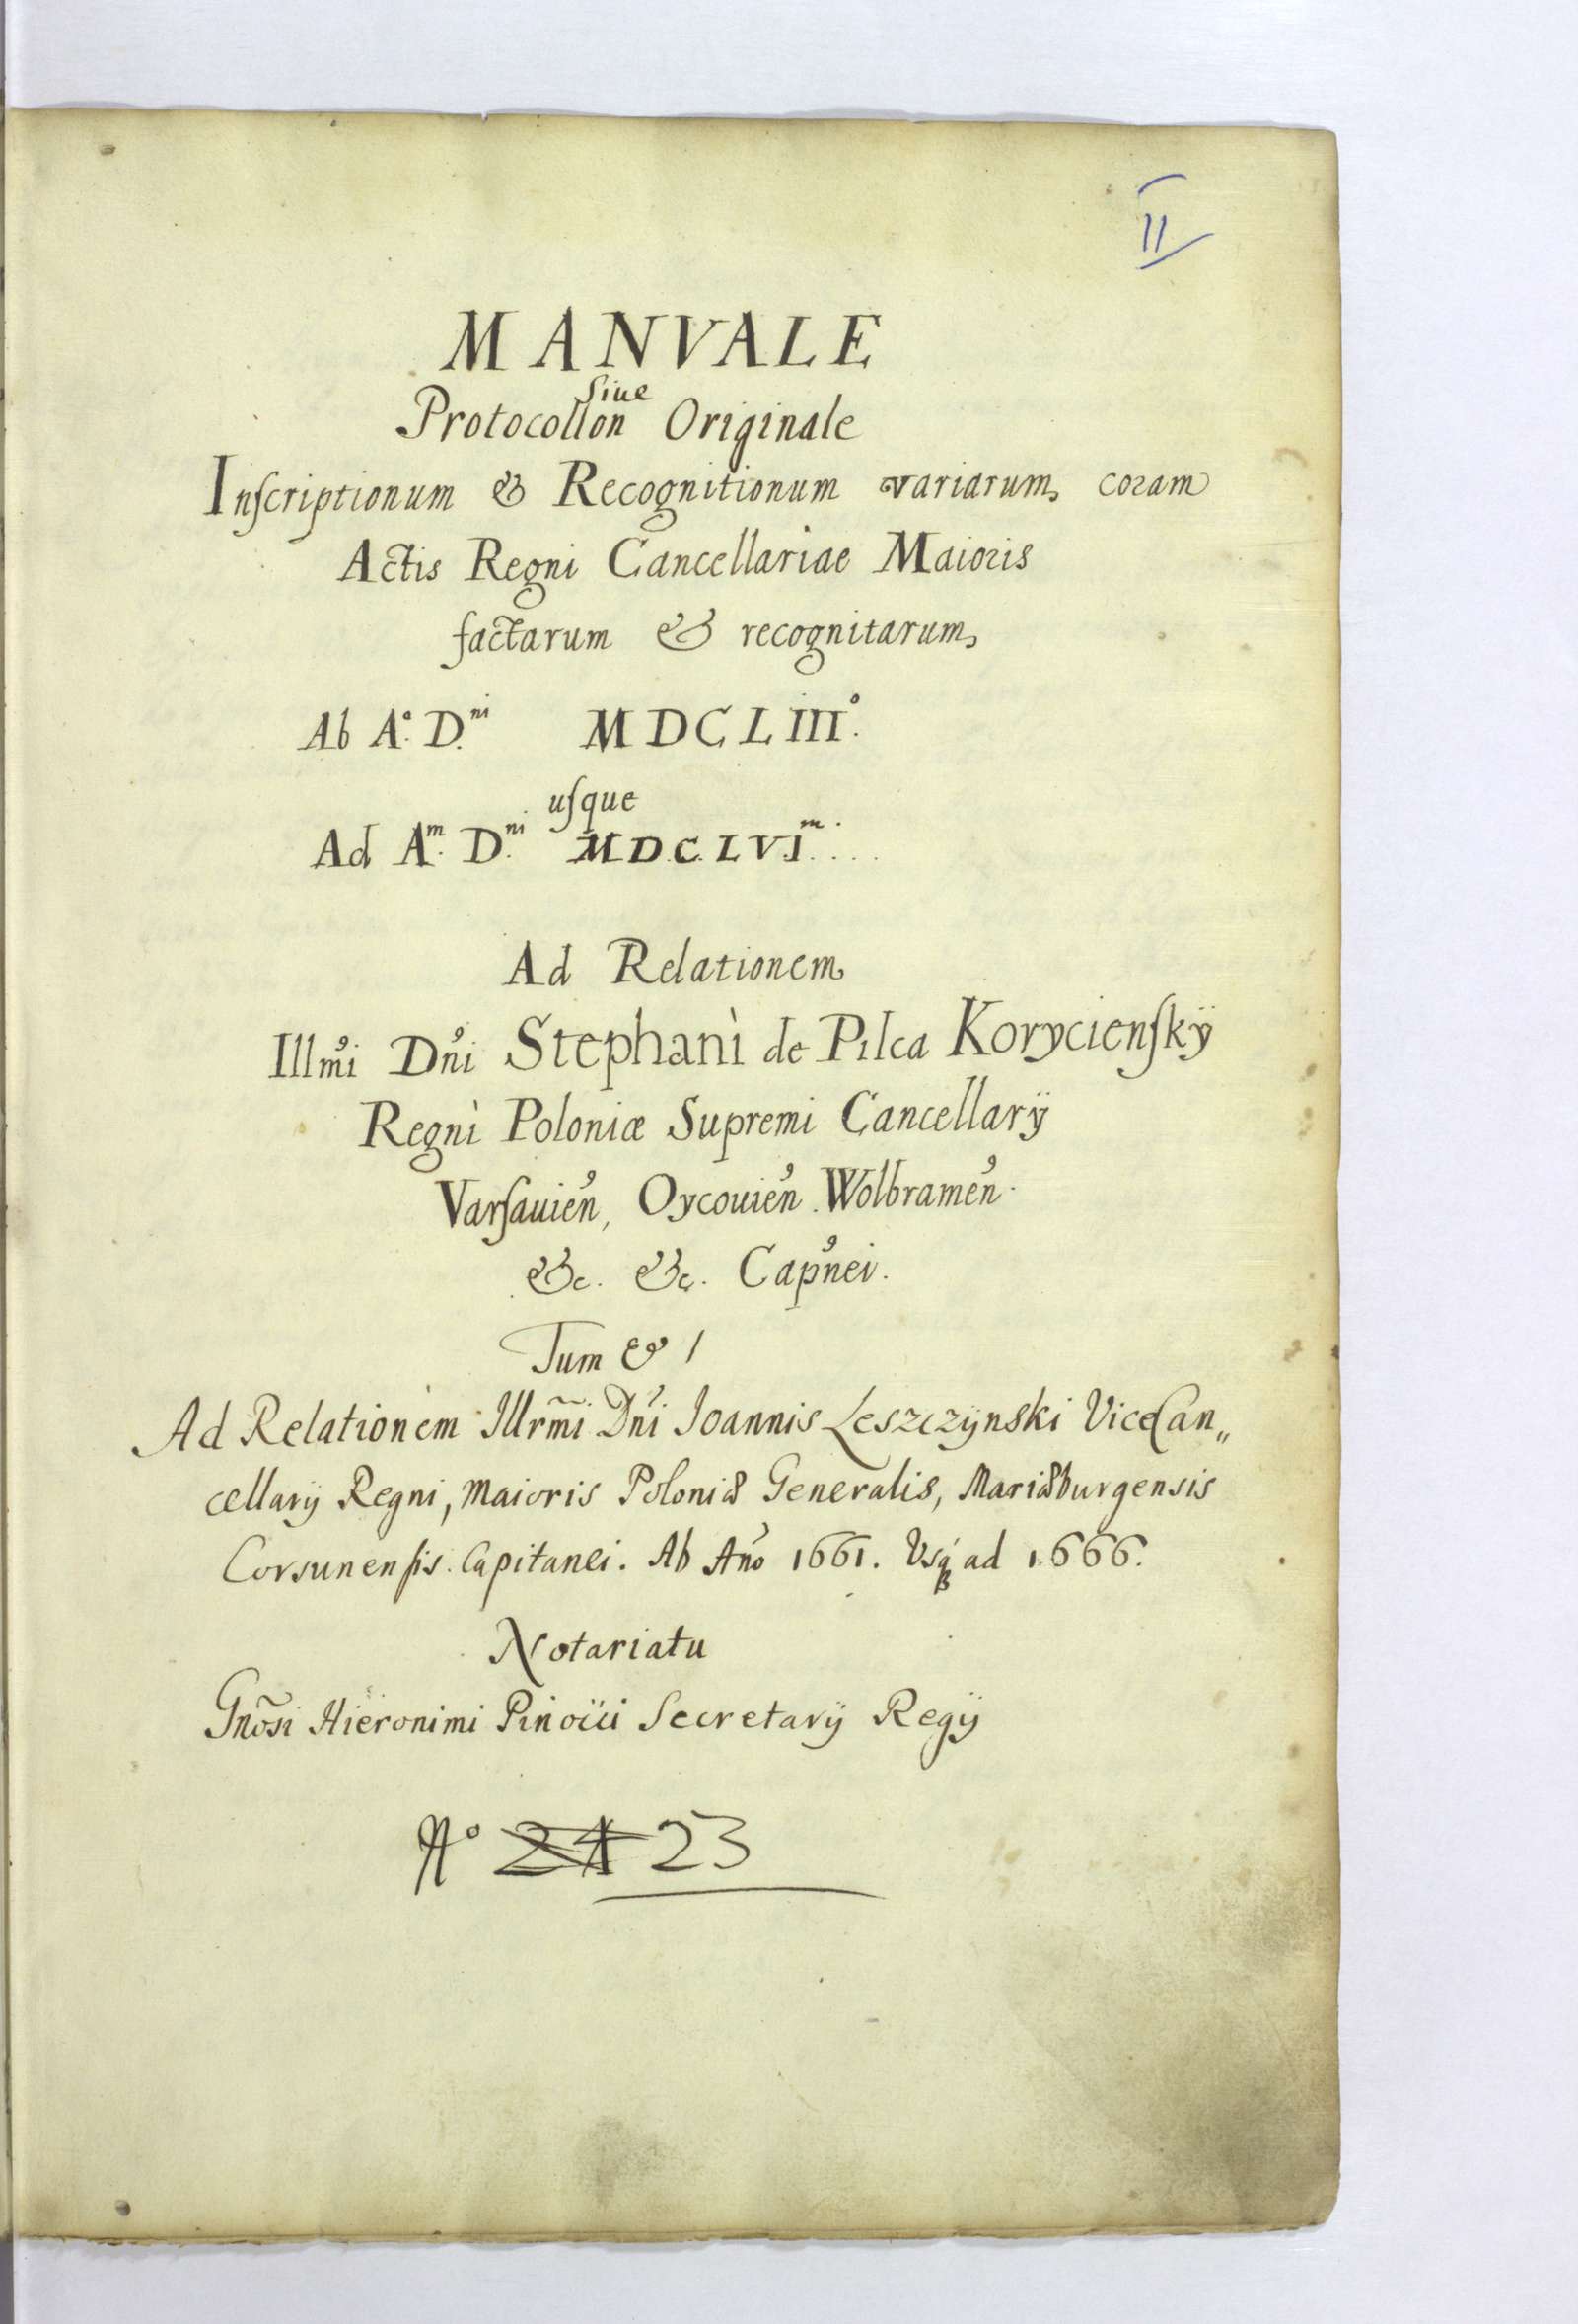 II
MANVALE
Siue
Protocollon Originale
Inſcriptionum & Recognitionum variarum coram
Actis Regni Cancellariae Maioris
factarum & recognitarum
Ab Aᵒ. D.ⁿⁱ MDCLIIIᵒ.
uſque
Ad Aᵐ. D.ⁿⁱ M.D.C.L.V.Iᵐ....
Ad Relationem
Illm̉i Dn̉i Stephani de Pilca Korycienſkÿ
Regni Poloniæ Supremi Cancellarÿ
Varſauień, Oycouień. Wolbrameń.
&c. &c. Capn̉ei.
Tum & /
Ad Relationem Illrm̃i Dn̉i Ioannis Leszczÿnski ViceCan„
cellarÿ Regni, Maioris Poloniæ Generalis, Mariæburgensis
Corsunenſis. Capitanei. Ab Ano̓ 1661. Vsq́ꝫ ad 1666.
Notariatu
Gnõsi Hieronimi Pinoÿi Secretarÿ Regÿ
Nᵒ 23